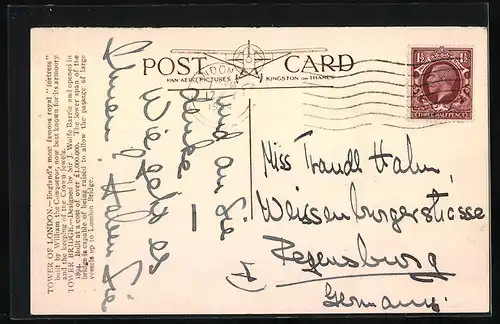 POST CARD
PAN-AERO PICTURES KINGSTON on THAMES
TOWER OF LONDON.—England's most famous royal "fortress"
built by William the Conqueror, now best known for its armoury
and the keeping of the Crown Jewels.
TOWER BRIDGE.—Designed by Sir J. Wolfe Barrie and opened in
1894. Built at a cost of over £1,000,000. The lower span of the
bridge is capable of being raised to allow the passage of large
vessels up to London Bridge.
1½ 1½
THREE HALFPENCE
und an Sie
denke —
Wie geht es
Ihnen? Haben Sie
Miss Traudl Hahn,
Weissenburgerstrasse
Regensburg
Germany.